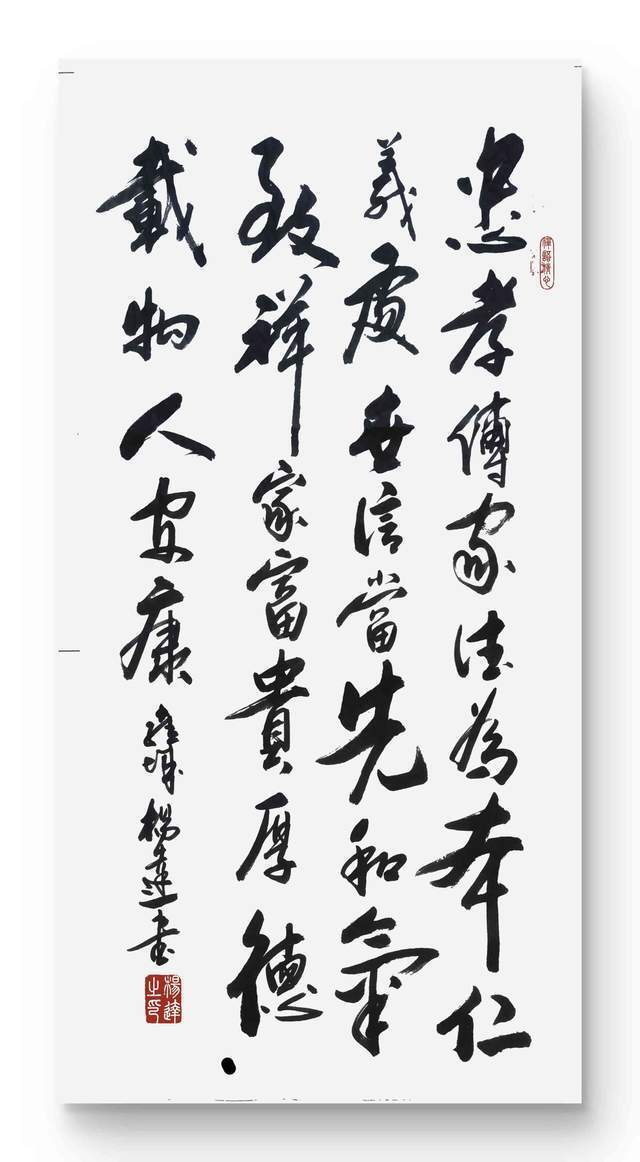 忠孝傳家德為本仁
義處世信當先和氣
致祥家富貴厚德
載物人安康
楊達書
楊達之印